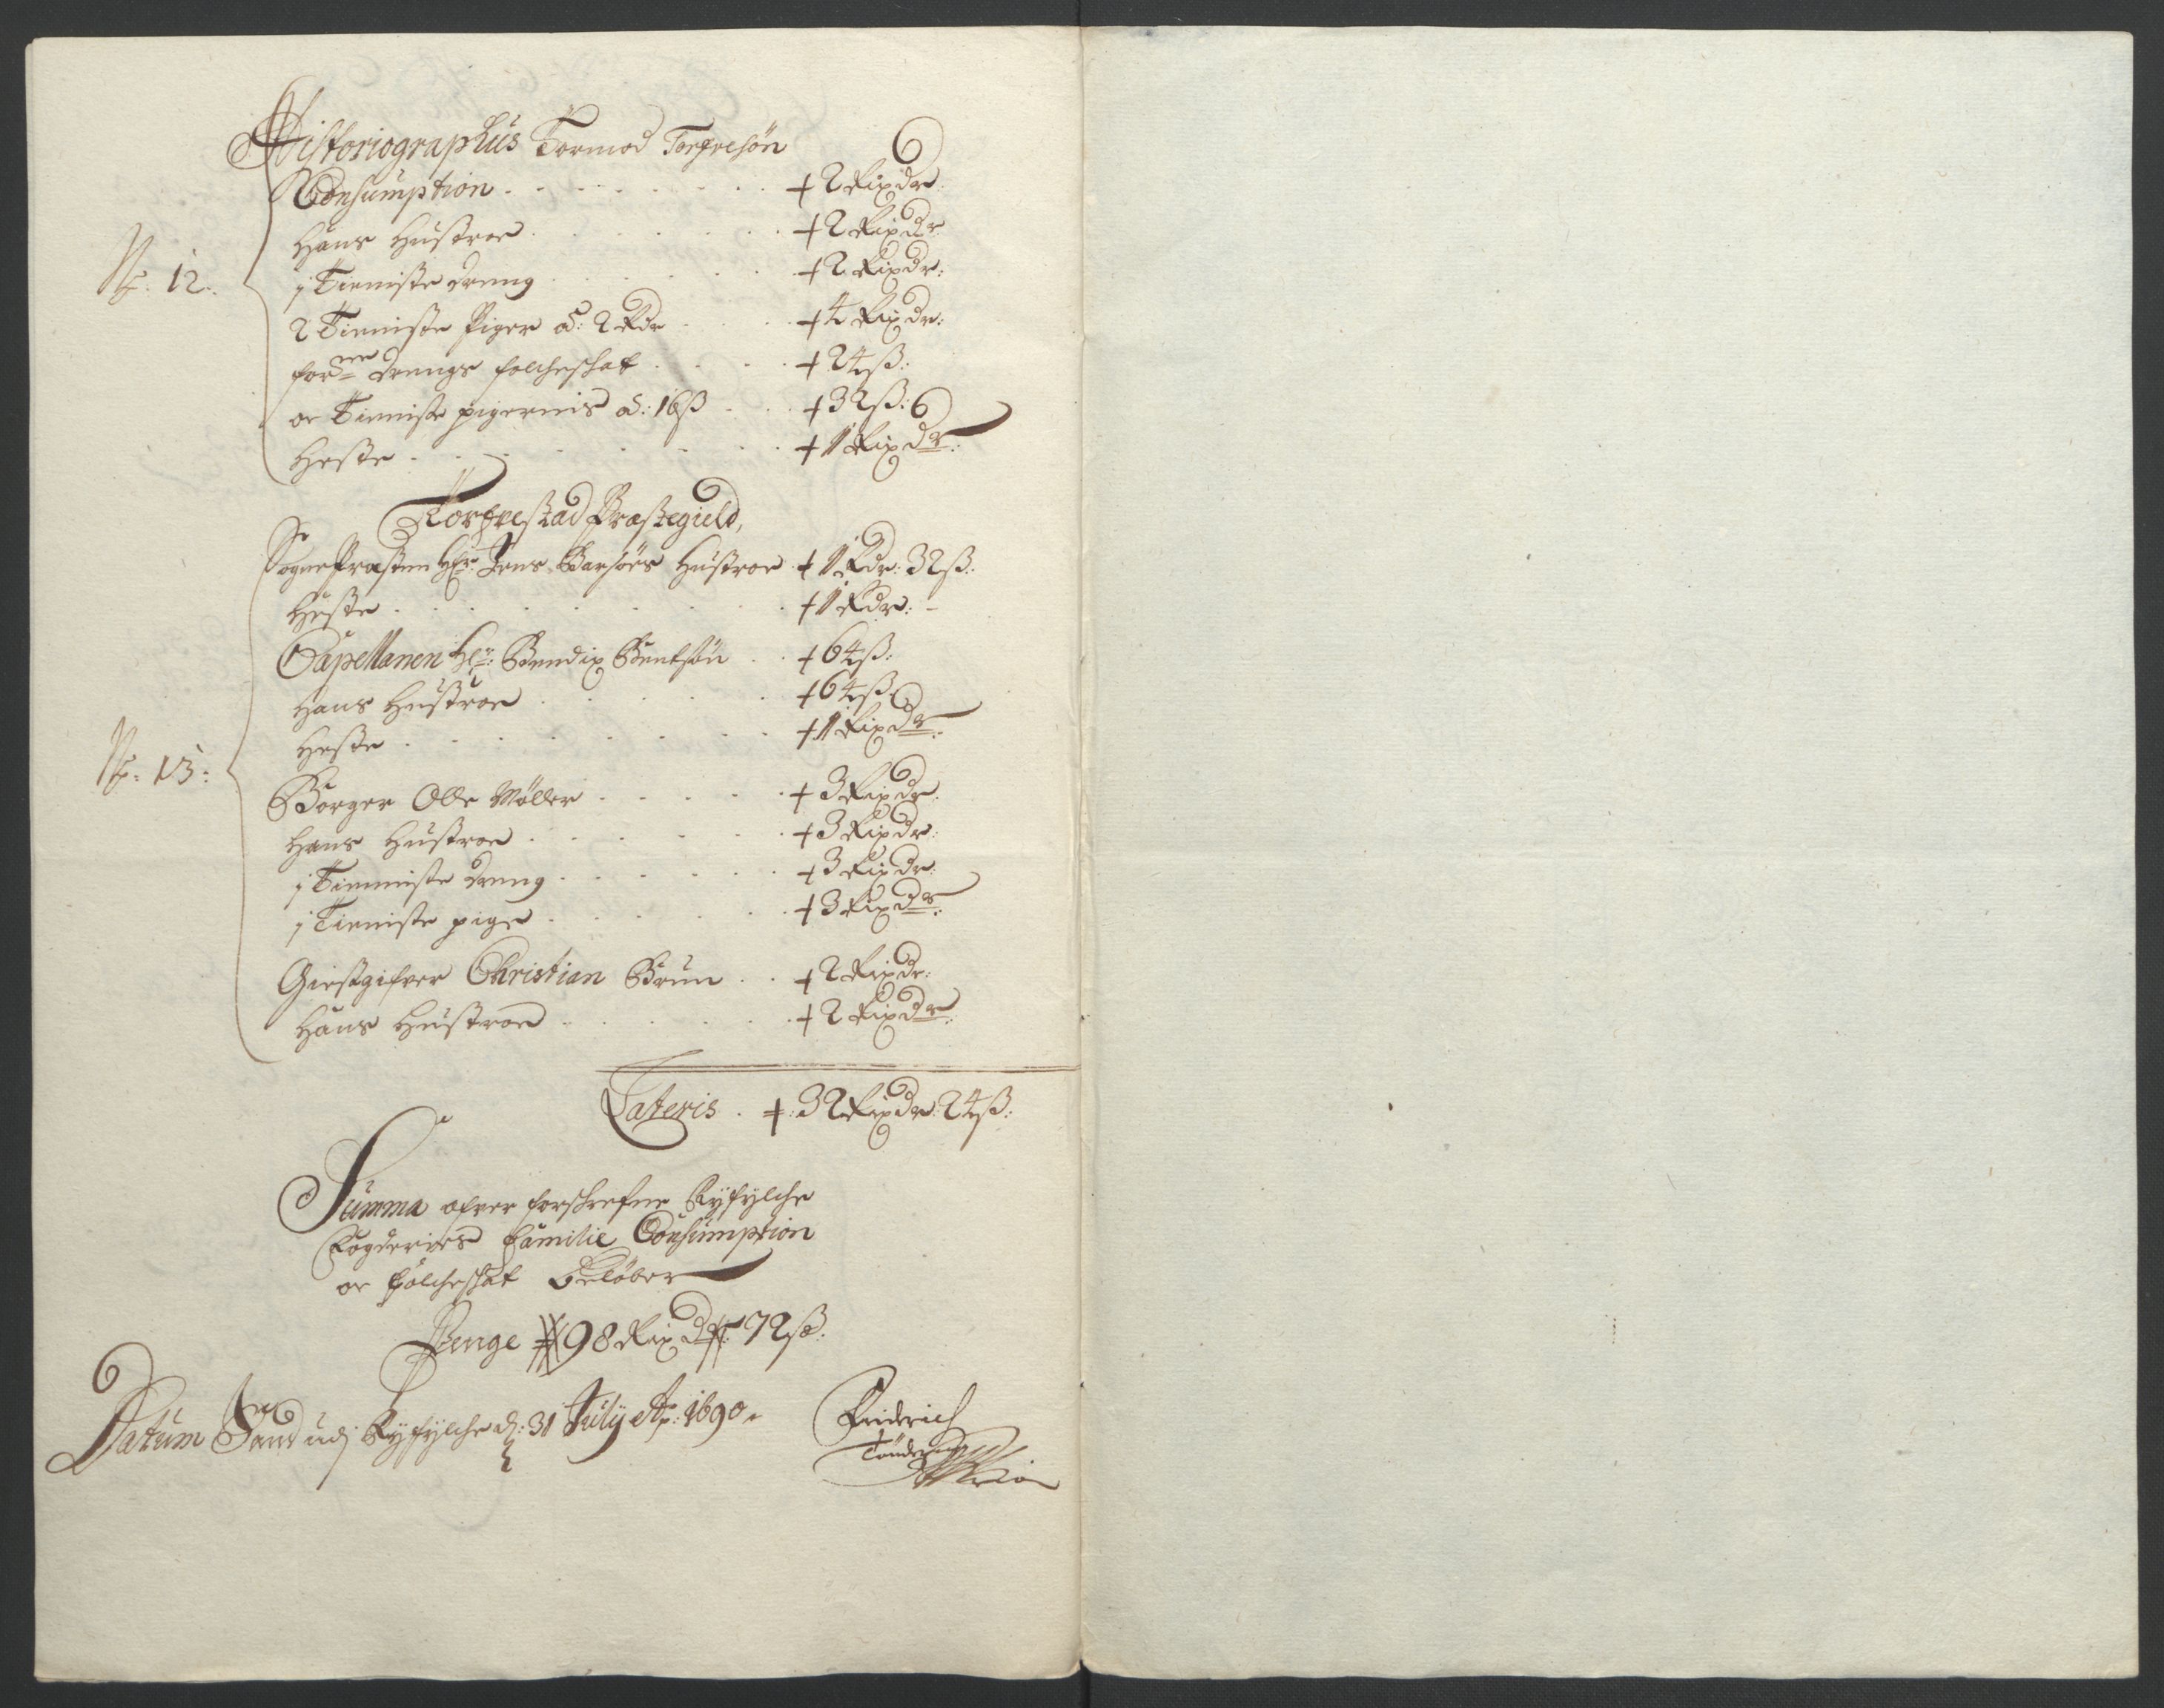 Historiographus Tormod Torfvesön
Consumption . . . . . . . . + 2 Rixdr:
Hans Hustroe . . . . . . . + 2 Rixdr
N: 12:
1 Tienniste dreng . . . . . . + 2 Rixdr:
2 Tienniste Piger á: 2 Rdr . . . + 4 Rixdr:
for:ne drengs folcheschat . . . . + 24 ß:
oc Tienniste pigernis á: 16 ß . . + 32 ß:
Heste . . . . . . . . . + 1 Rixdr:
Torfvestad Præstegield,
SognePræsten Hr: Jens Barsöes Hustroe + 1 Rdr: 32 ß:
Heste . . . . . . . . . + 1 Rdr: -
Capellanen Hr: Bendix Bentsön . . + 64 ß:
Hans Hustroe . . . . . . + 64 ß
Heste . . . . . . . . . + 1 Rixdr:
N: 13:
Borger Olle Möller . . . . . + 3 Rixdr
Hans Hustroe . . . . . . + 3 Rixdr:
1 Tienniste dreng . . . . . . + 3 Rixdr:
1 Tienniste pige . . . . . . + 3 Rixdr:
Giestgifver Christian Brun . . + 2 Rixdr:
Hans Hustroe . . . . . . + 2 Rixdr:
Lateris . +: 32 Rixdr: 24 ß:
Summa ofver forschrefne Ryfylche
Fogderies Familie Consumption
oc Folcheschat Belöber
Penge 98 Rixdr: 72 ß:
Datum Sand udj Ryfylche d: 31 July Ao: 1690
Friderich
Tönder